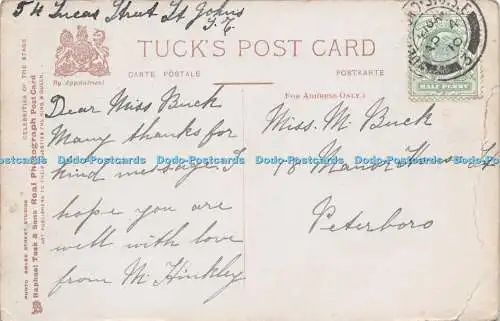 54 Lucas Street St Johns
TUCK'S POST CARD
CARTE POSTALE
POSTKARTE
By Appointment
(FOR ADDRESS ONLY.)
HALF PENNY
Dear Miss Buck
Many thanks for
kind message. I
hope you are
well with love
from M. Hinkley
Miss. M. Buck
78 Manor House St
Peterboro
CELEBRITIES OF THE STAGE
Raphael Tuck & Sons Real Photograph Post Card
ART PUBLISHERS TO THEIR MAJESTIES THE KING & QUEEN.
Dodo-Postcards Dodo-Postcards Dodo-Postcards Dodo-Postcards Dodo-Postcards